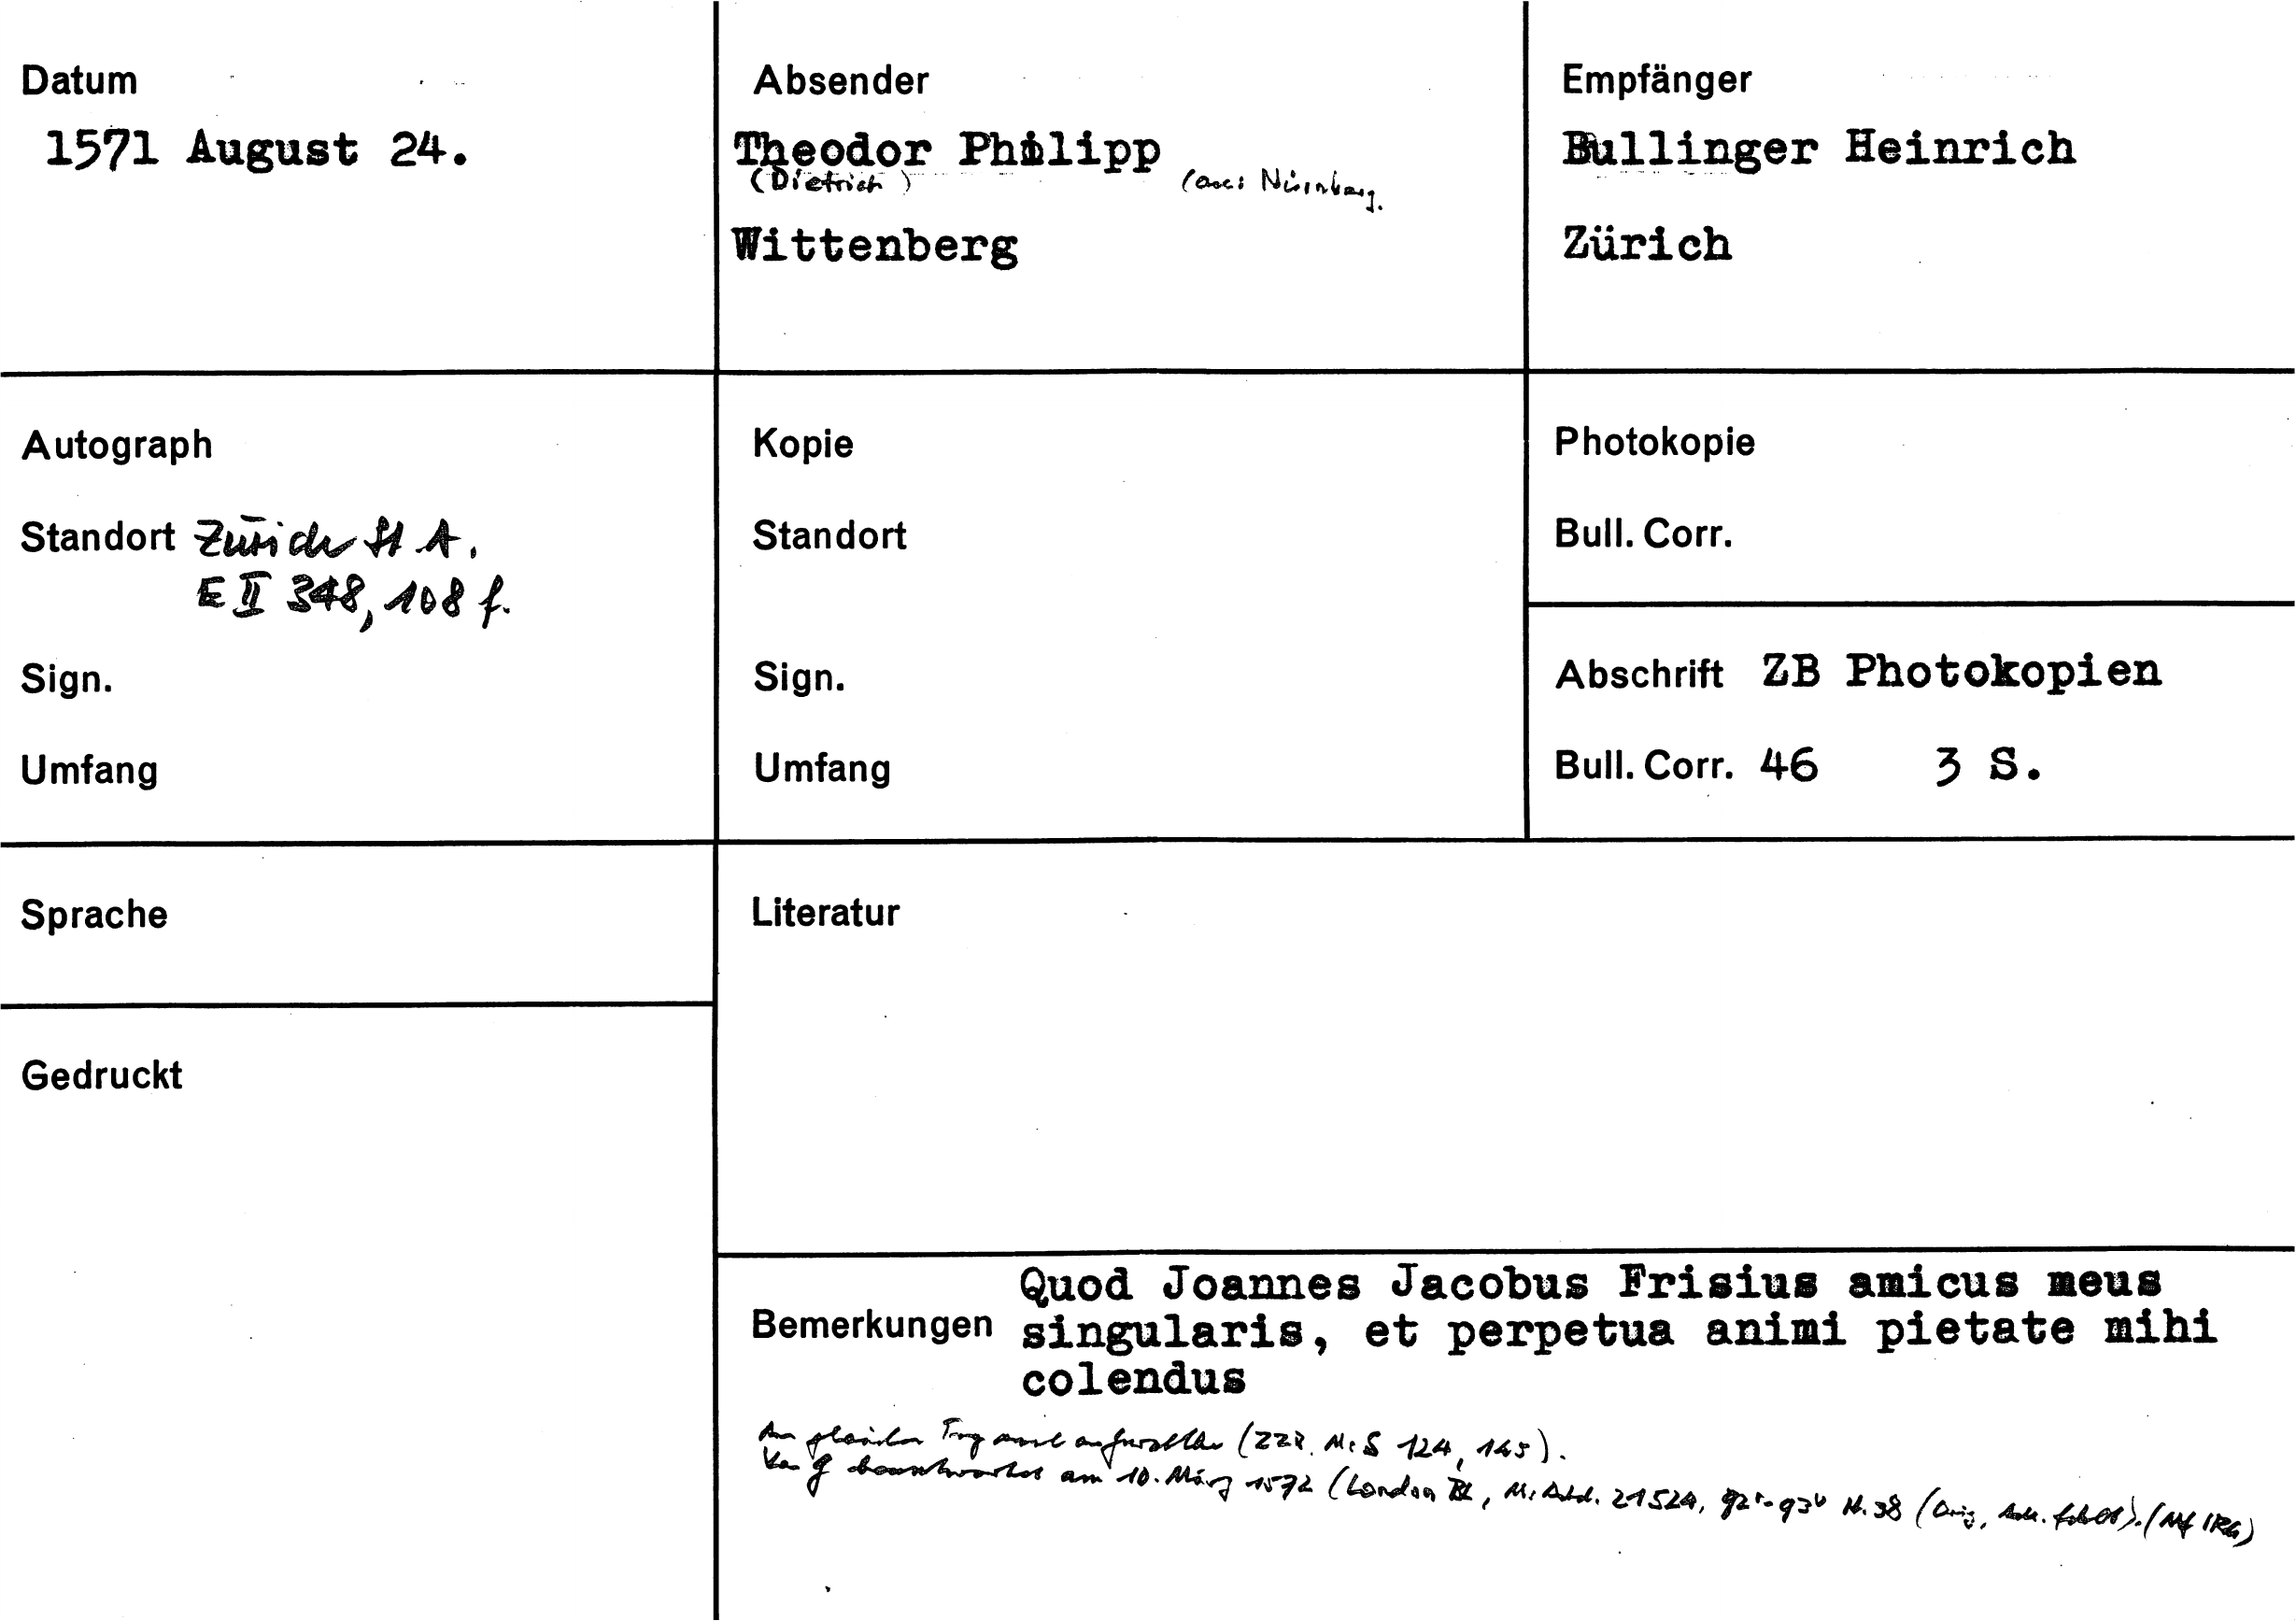 Datum
1571 August 24.
Absender
Theodor Philipp
(Dietrich) (aus Nürnberg.
Wittenberg
Empfänger
Bullinger Heinrich
Zürich
Autograph
Standort Zürich StA.
E II 348, 108 f.
Sign.
Umfang
Kopie
Standort
Sign.
Umfang
Photokopie
Bull. Corr.
Abschrift ZB Photokopien
Bull. Corr. 46 3 S.
Sprache
Literatur
Gedruckt
Bemerkungen
Quod Joannes Jacobus Frisius amicus meus
singularis, et perpetua animi pietate mihi
colendus
Am gleichen Tag (ZZB, Ms S 124, 145).
Von beantwortet am 10. März 1572 (London BL, Ms Add. 21524, 92r-93v N. 38 (Orig. (Mf IRG)